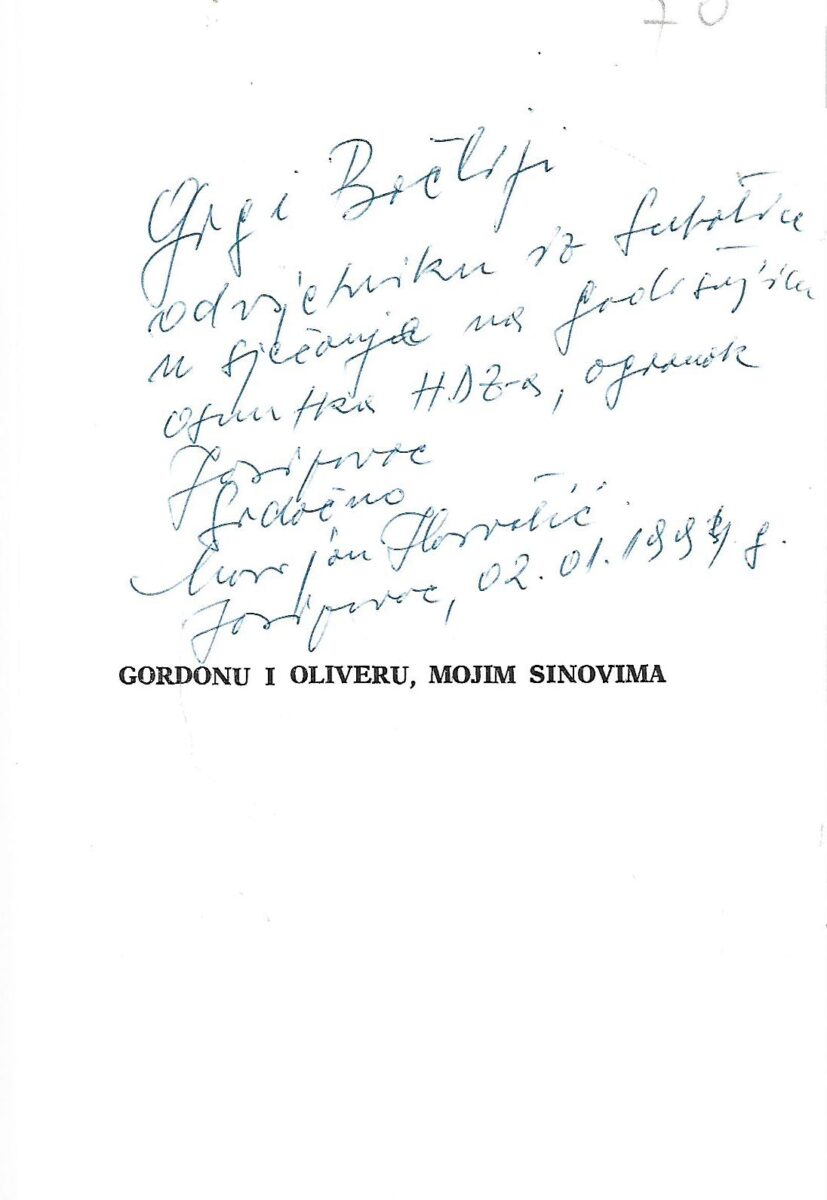 70
Grgi Bačliji
odvjetniku iz Subotice
u sjećanje na godišnjicu
osnutka HDZ-a, ogranak
Josipovac
Srdačno
Marijan Horvatić
Josipovac, 02.01.1991. g.
GORDONU I OLIVERU, MOJIM SINOVIMA